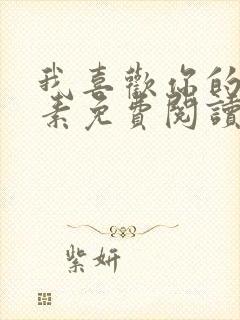 我喜歡你的
素免費閱讀
紫妍